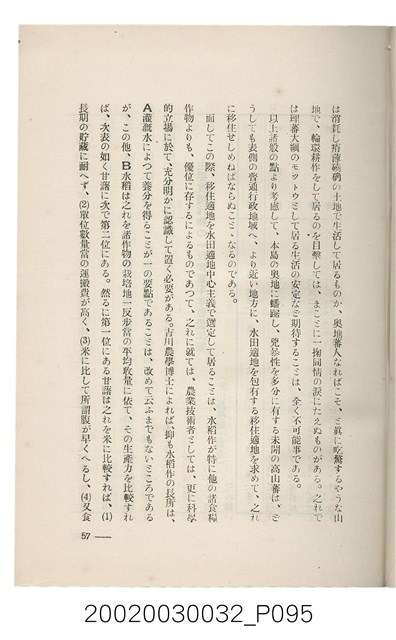 は消耗し瘠薄磽确の土地で生活して居るものか、奥地蕃人なればこそ、と眞に吃驚するやうな山
地で、輪環耕作をして居るのを目撃しては、まことに一掬同情の涙にたえぬものがある。之れで
は理蕃大綱のモットウとして居る生活の安定など期待することは、全く不可能事である。
以上諸般の點より考慮して、本島の奥地に蟠踞し、兇暴性を多分に有する未開の高山蕃は、ど
うしても表側の普通行政地域へ、より近い地方に、水田適地を包有する移住適地を求めて、之れ
に移住せしめねばならぬこととなるのである。
而してこの際、移住適地を水田適地中心主義で選定して居ることは、水稻作が特に他の諸食糧
作物よりも、優位に存するによるものであつて、之れに就ては、農業技術者としては、更に科學
的立場に於て、充分明かに認識して置く必要がある。吉川農學博士によれば、抑も水稻作の長所は、
A灌漑水によつて養分を得ることが一の要點であることは、改めて云ふまでもないところである
が、この他、B水稻は之れを諸作物の栽培地一反步當の平均收量に依て、その生產力を比較すれ
ば、次表の如く甘藷に次で第二位にある。然るに第一位にある甘藷は之れを米に比較すれば、(1)
長期の貯藏に耐へず、(2)單位數量當の運搬費が高く、(3)米に比して所謂腹が早くへるし、(4)又食
57
20020030032_P095